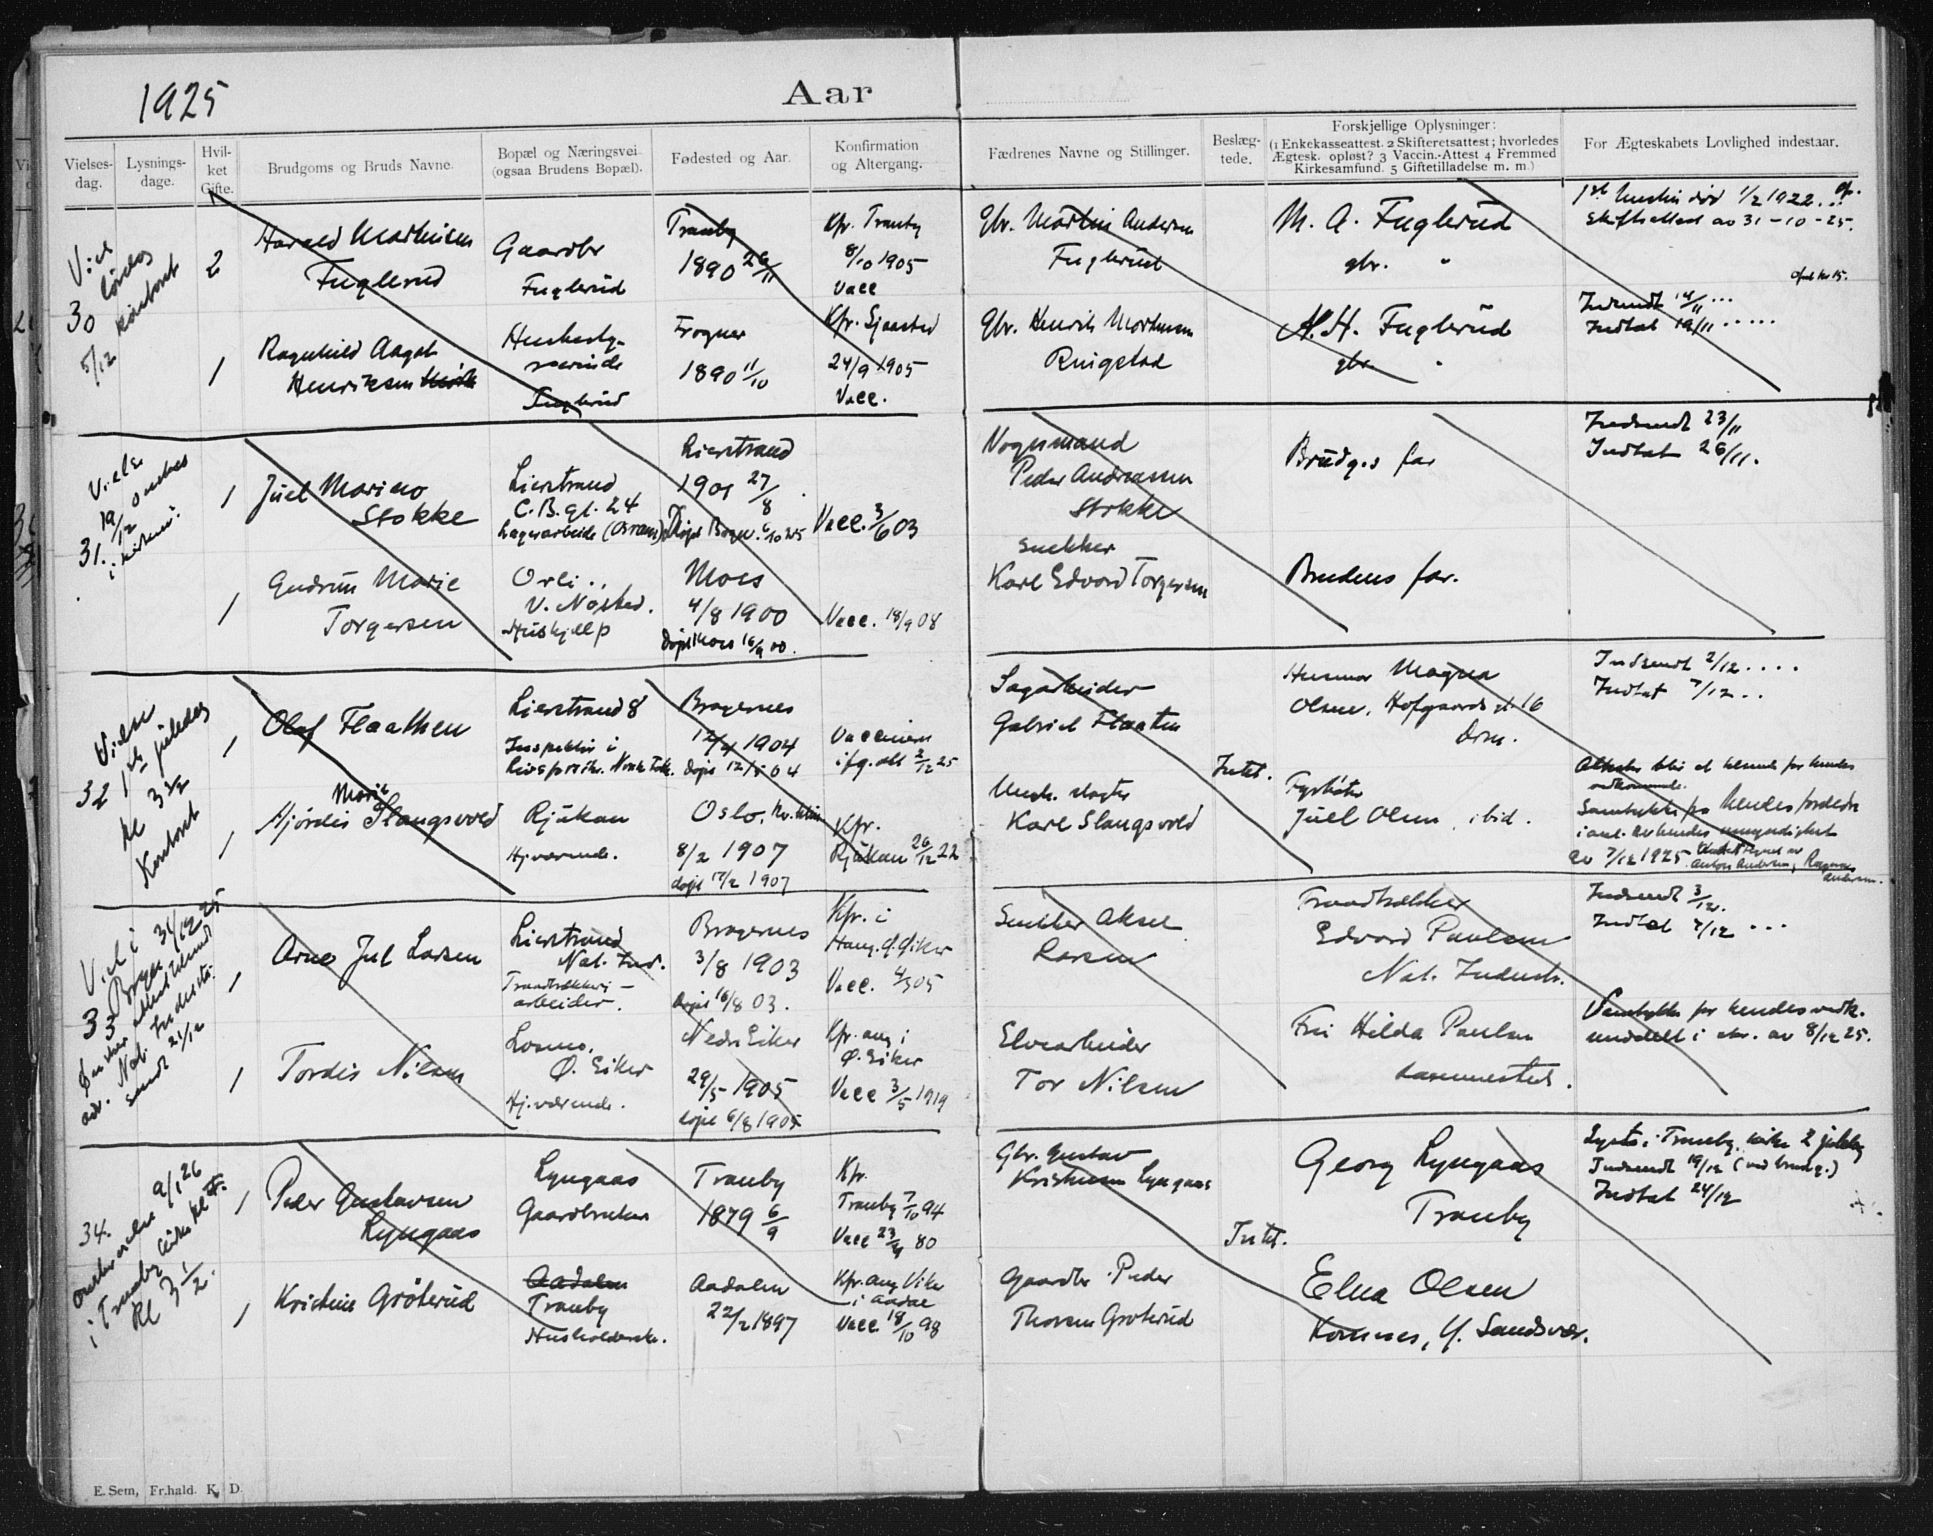 1925
Aar
Vielses-dag.
Lysnings-dage.
Hvil-ket Gifte.
Brudgoms og Bruds Navne.
Bopæl og Næringsvei
(ogsaa Brudens Bopæl).
Fødested og Aar.
Konfirmation
og Altergang.
Fædrenes Navne og Stillinger.
Beslæg-tede.
Forskjellige Oplysninger:
(1 Enkekasseattest. 2 Skifteretsattest; hvorledes
Ægtesk. opløst? 3 Vaccin.-Attest 4 Fremmed
Kirkesamfund. 5 Giftetilladelse m. m.)
For Ægteskabets Lovlighed indestaar.
Viel
lørdag
30 kontoret
5/12
2
Harald Mathisen
Fuglerud
Gaardbr
Fuglerud
Tranby
1890 26/11
Kfr. Tranby
8/10 1905
Vacc
Gbr. Martin Andersen
Fuglerud
M. A. Fuglerud
gbr. "
1ste hustru død 1/2 1922.
Skifteattest av 31-10-25.
1
Ragnhild Aagot
Henriksen
Husbesty-
rerinde
Fuglerud
Frogner
1890 11/10
Kfr. Sjaastad
24/9 1905
Vacc.
Gbr. Henrik Mortensen
Ringstad
H. H. Fuglerud
gbr. "
Indsendt 14/11 ...
Indtat 19/11 .....
Vielse
19/12
31. i kirken.
1
Juel Marino
Stokke
Lierstrand
C. B. gt. 24
Lagerarbeide (Osram)
Lierstrand
1901 27/8
Døpt Bragn. 6/10 25
Vacc. 3/6 03
Vognmand
Peder Andreassen
Stokke
Brudg.s far
Indsendt 23/11
Indtat 26/11.
1
Gudrun Marie
Torgersen
Orli..
V. Nøsted.
Hushjelp
Moss
4/8 1900
Døpt Moss 16/9 00.
Vacc. 18/9 08
Snekker
Karl Edvard Torgersen
Brudens far.
Vielse
32 1ste juledag
kl 3 1/2
Kontoret
1
Olaf Flaathen
Lierstrand 8
Inspektør i
Bragernes
12/4 1904
døpt 12/5 04
Vaccineren
ifg. att 2/12 25
Sagarbeider
Gabriel Flaaten
Husmor Magna
Olsen, Hofgaards gt. 16
Drm.
Indsendt 2/12 ....
Indtat 7/12 ..
1
Hjördis Marie Slangsvold
Rjukan
Hj. værende.
Oslo,
8/2 1907
døpt 17/2 1907
Kfr.
Rjukan 26/12 22
Karl Slangsvold
Intet.
Fyrbøter
Juel Olsen, ibid.
Samtykke fra hendes forældre
av 7/12 1925.
Viel i
33 Bragn 31/12 25
Nat. Industr.
sendt 21/12
1
Arne Jul Larsen
Lierstrand
Nat. Ind.
Traadtrækkeri-
arbeider.
Bragernes
3/8 1903
døpt 16/8 03.
Kfr. i
Haug. Ø. Eiker
Vacc. 4/5 05
Snekker Aksel
Larsen
Traadtrækker
Edvard Paulsen
Nat. Industr.
Indsendt 3/12.
Indtat 7/12 ...
1
Tordis Nilsen
Ø. Eiker
Hj. værende.
Nedre Eiker
29/5 1905
døpt 6/8 1905
Kfr. aug i
Ø. Eiker
Vacc 3/5 1919
Elvearbeider
Tor Nilsen
Fru Hilda Paulsen
sammesteds.
Samtykke for hendes vedk.
meddelt i skr. av 8/12 25.
34. 9/1 26
i Tranby kirke
kl 3 1/2.
1
Peder Gustavsen
Lyngaas
Lyngaas
Gaardbruker
Tranby
1879 6/9
Kfr.
Tranby 7/10 94
Vacc 23/9 80
Gbr. Gustav
Kristiansen Lyngaas
Georg Lyngaas
Tranby
Lyst i Tranby kirke 2 juledag
Indsendt 19/12 (ved brudg.)
Indtat 24/12
Intet.
1
Kristine Gröterud
Aadalen
Tranby
Husholderske.
Aadalen
22/2 1897
Kfr. aug Viker
i Aadal
Vacc 18/10 98
Gaardbr Peder
Thorsen Groterud
Elna Olsen
Komnes, Y. Sandsvær.
E. Sem, Fr.hald. K. D.